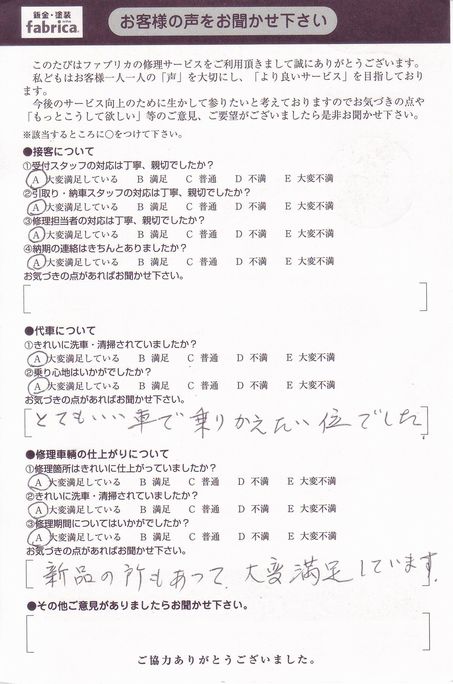 鈑金・塗装
fabrica.
お客様の声をお聞かせ下さい
このたびはファブリカの修理サービスをご利用頂きまして誠にありがとうございます。
私どもはお客様一人一人の「声」を大切にし、「より良いサービス」を目指しており
ます。
今後のサービス向上のために生かして参りたいと考えておりますのでお気づきの点や
「もっとこうして欲しい」等のご意見、ご要望がございましたら是非お聞かせ下さい。
※該当するところに○をつけて下さい。
●接客について
①受付スタッフの対応は丁寧、親切でしたか？
A 大変満足している B 満足 C 普通 D 不満 E 大変不満
②引取り・納車スタッフの対応は丁寧、親切でしたか？
A 大変満足している B 満足 C 普通 D 不満 E 大変不満
③修理担当者の対応は丁寧、親切でしたか？
A 大変満足している B 満足 C 普通 D 不満 E 大変不満
④納期の連絡はきちんとありましたか？
A 大変満足している B 満足 C 普通 D 不満 E 大変不満
お気づきの点があればお聞かせ下さい。
●代車について
①きれいに洗車・清掃されていましたか？
A 大変満足している B 満足 C 普通 D 不満 E 大変不満
②乗り心地はいかがでしたか？
A 大変満足している B 満足 C 普通 D 不満 E 大変不満
お気づきの点があればお聞かせ下さい。
とてもいい車で乗りかえたい位でした。
●修理車輌の仕上がりについて
①修理箇所はきれいに仕上がっていましたか？
A 大変満足している B 満足 C 普通 D 不満 E 大変不満
②きれいに洗車・清掃されていましたか？
A 大変満足している B 満足 C 普通 D 不満 E 大変不満
③修理期間についてはいかがでしたか？
A 大変満足している B 満足 C 普通 D 不満 E 大変不満
お気づきの点があればお聞かせ下さい。
新品の所もあって、大変満足しています。
●その他ご意見がありましたらお聞かせ下さい。
ご協力ありがとうございました。